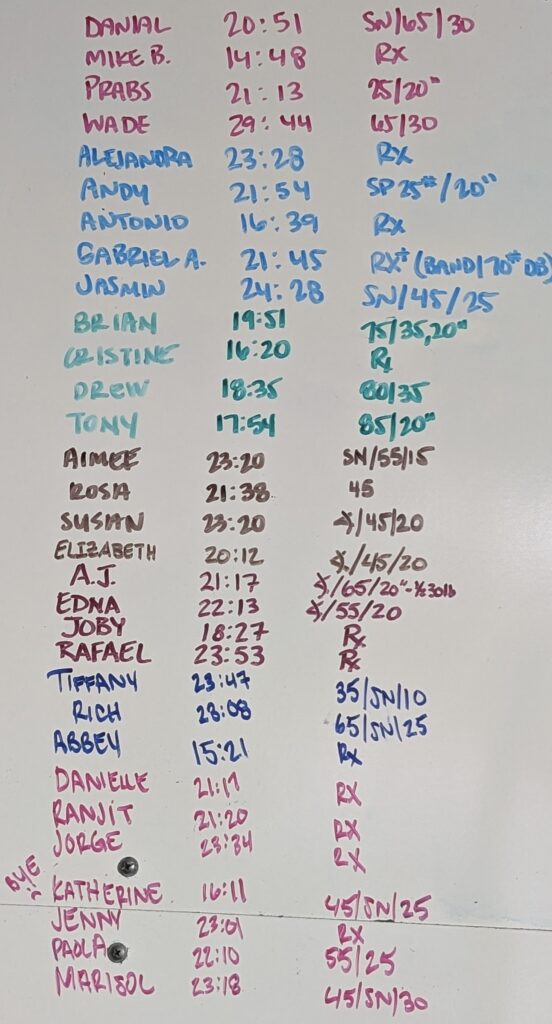 DANIAL 20:51 SN/65/30
MIKE B. 14:48 RX
PRABS 21:13 25/20"
WADE 29:44 65/30
ALEJANDRA 23:28 RX
ANDY 21:54 SP 25#/20"
ANTONIO 16:39 RX
GABRIEL A. 21:45 RX+ (BAND/70# DB)
JASMIN 24:28 SN/45/25
BRIAN 19:51 75/35,20"
CRISTINE 16:20 Rx
DREW 18:35 80/35
TONY 17:54 85/20"
AIMEE 23:20 SN/55/15
ROSIA 21:38 45
SUSIAN 23:20 /45/20
ELIZABETH 20:12 /45/20
A.J. 21:17 /65/20"-½30lb
EDNA 22:13 /55/20
JOBY 18:27 Rx
RAFAEL 23:53 Rx
TIFFANY 23:47 35/SN/10
RICH 28:08 65/SN/25
ABBEY 15:21 Rx
DANIELLE 21:17 RX
RANJIT 21:20 RX
JORGE 23:34 RX
BYE :)
KATHERINE 16:11 45/SN/25
JENNY 23:01 RX
PAOLA 22:10 55/25
MARISOL 23:18 45/SN/30